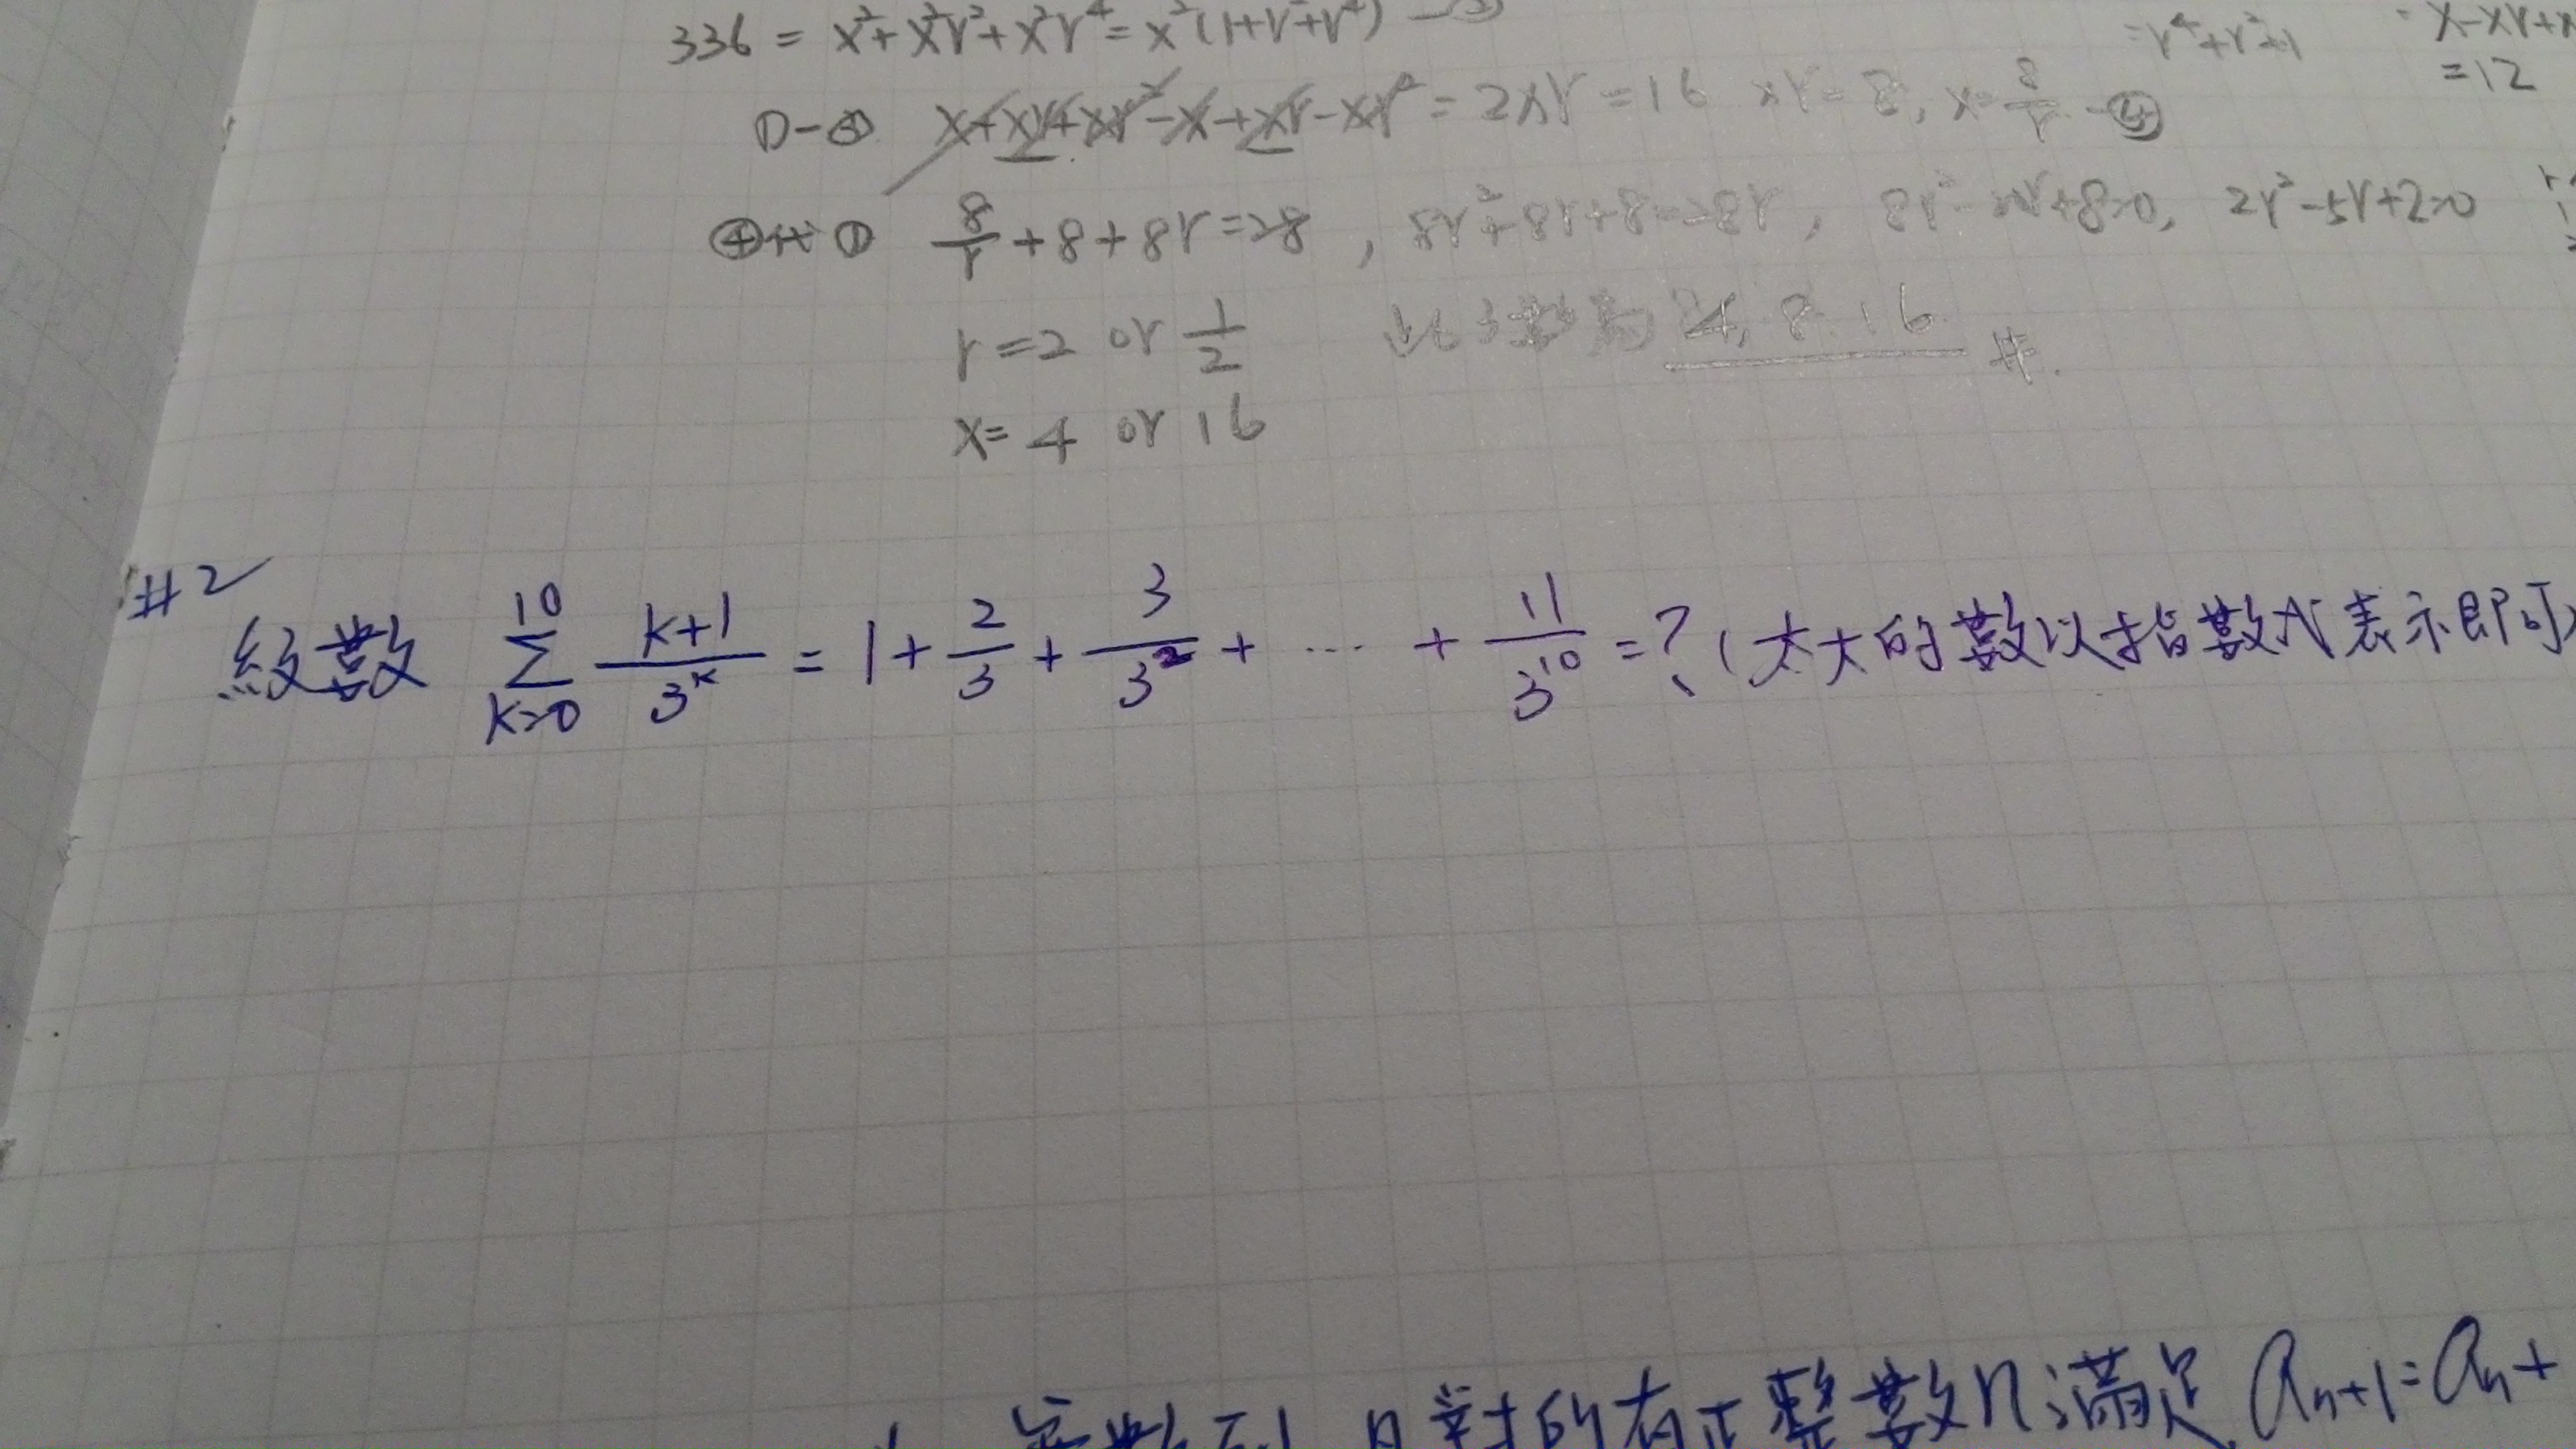 336 = x²+x²r²+x²r⁴ = x²(1+r²+r⁴) —②
=r⁴+r²+1
x-xr+x
=12
①-③ x+xr+xr²-x+xr-xr² = 2xr = 16 xr=8, x=8/r -④
④代① 8/r+8+8r=28, 8r²+8r+8=28r, 8r²-20r+8=0, 2r²-5r+2=0
r=2 or 1/2 4, 8, 16 #
x=4 or 16
#2
級數 10 Σ k=0 (k+1)/3ᵏ = 1 + 2/3 + 3/3² + ... + 11/3¹⁰ = ? (太大的數以指數式表示即可)
對所有正整數n滿足 aₙ₊₁=aₙ+